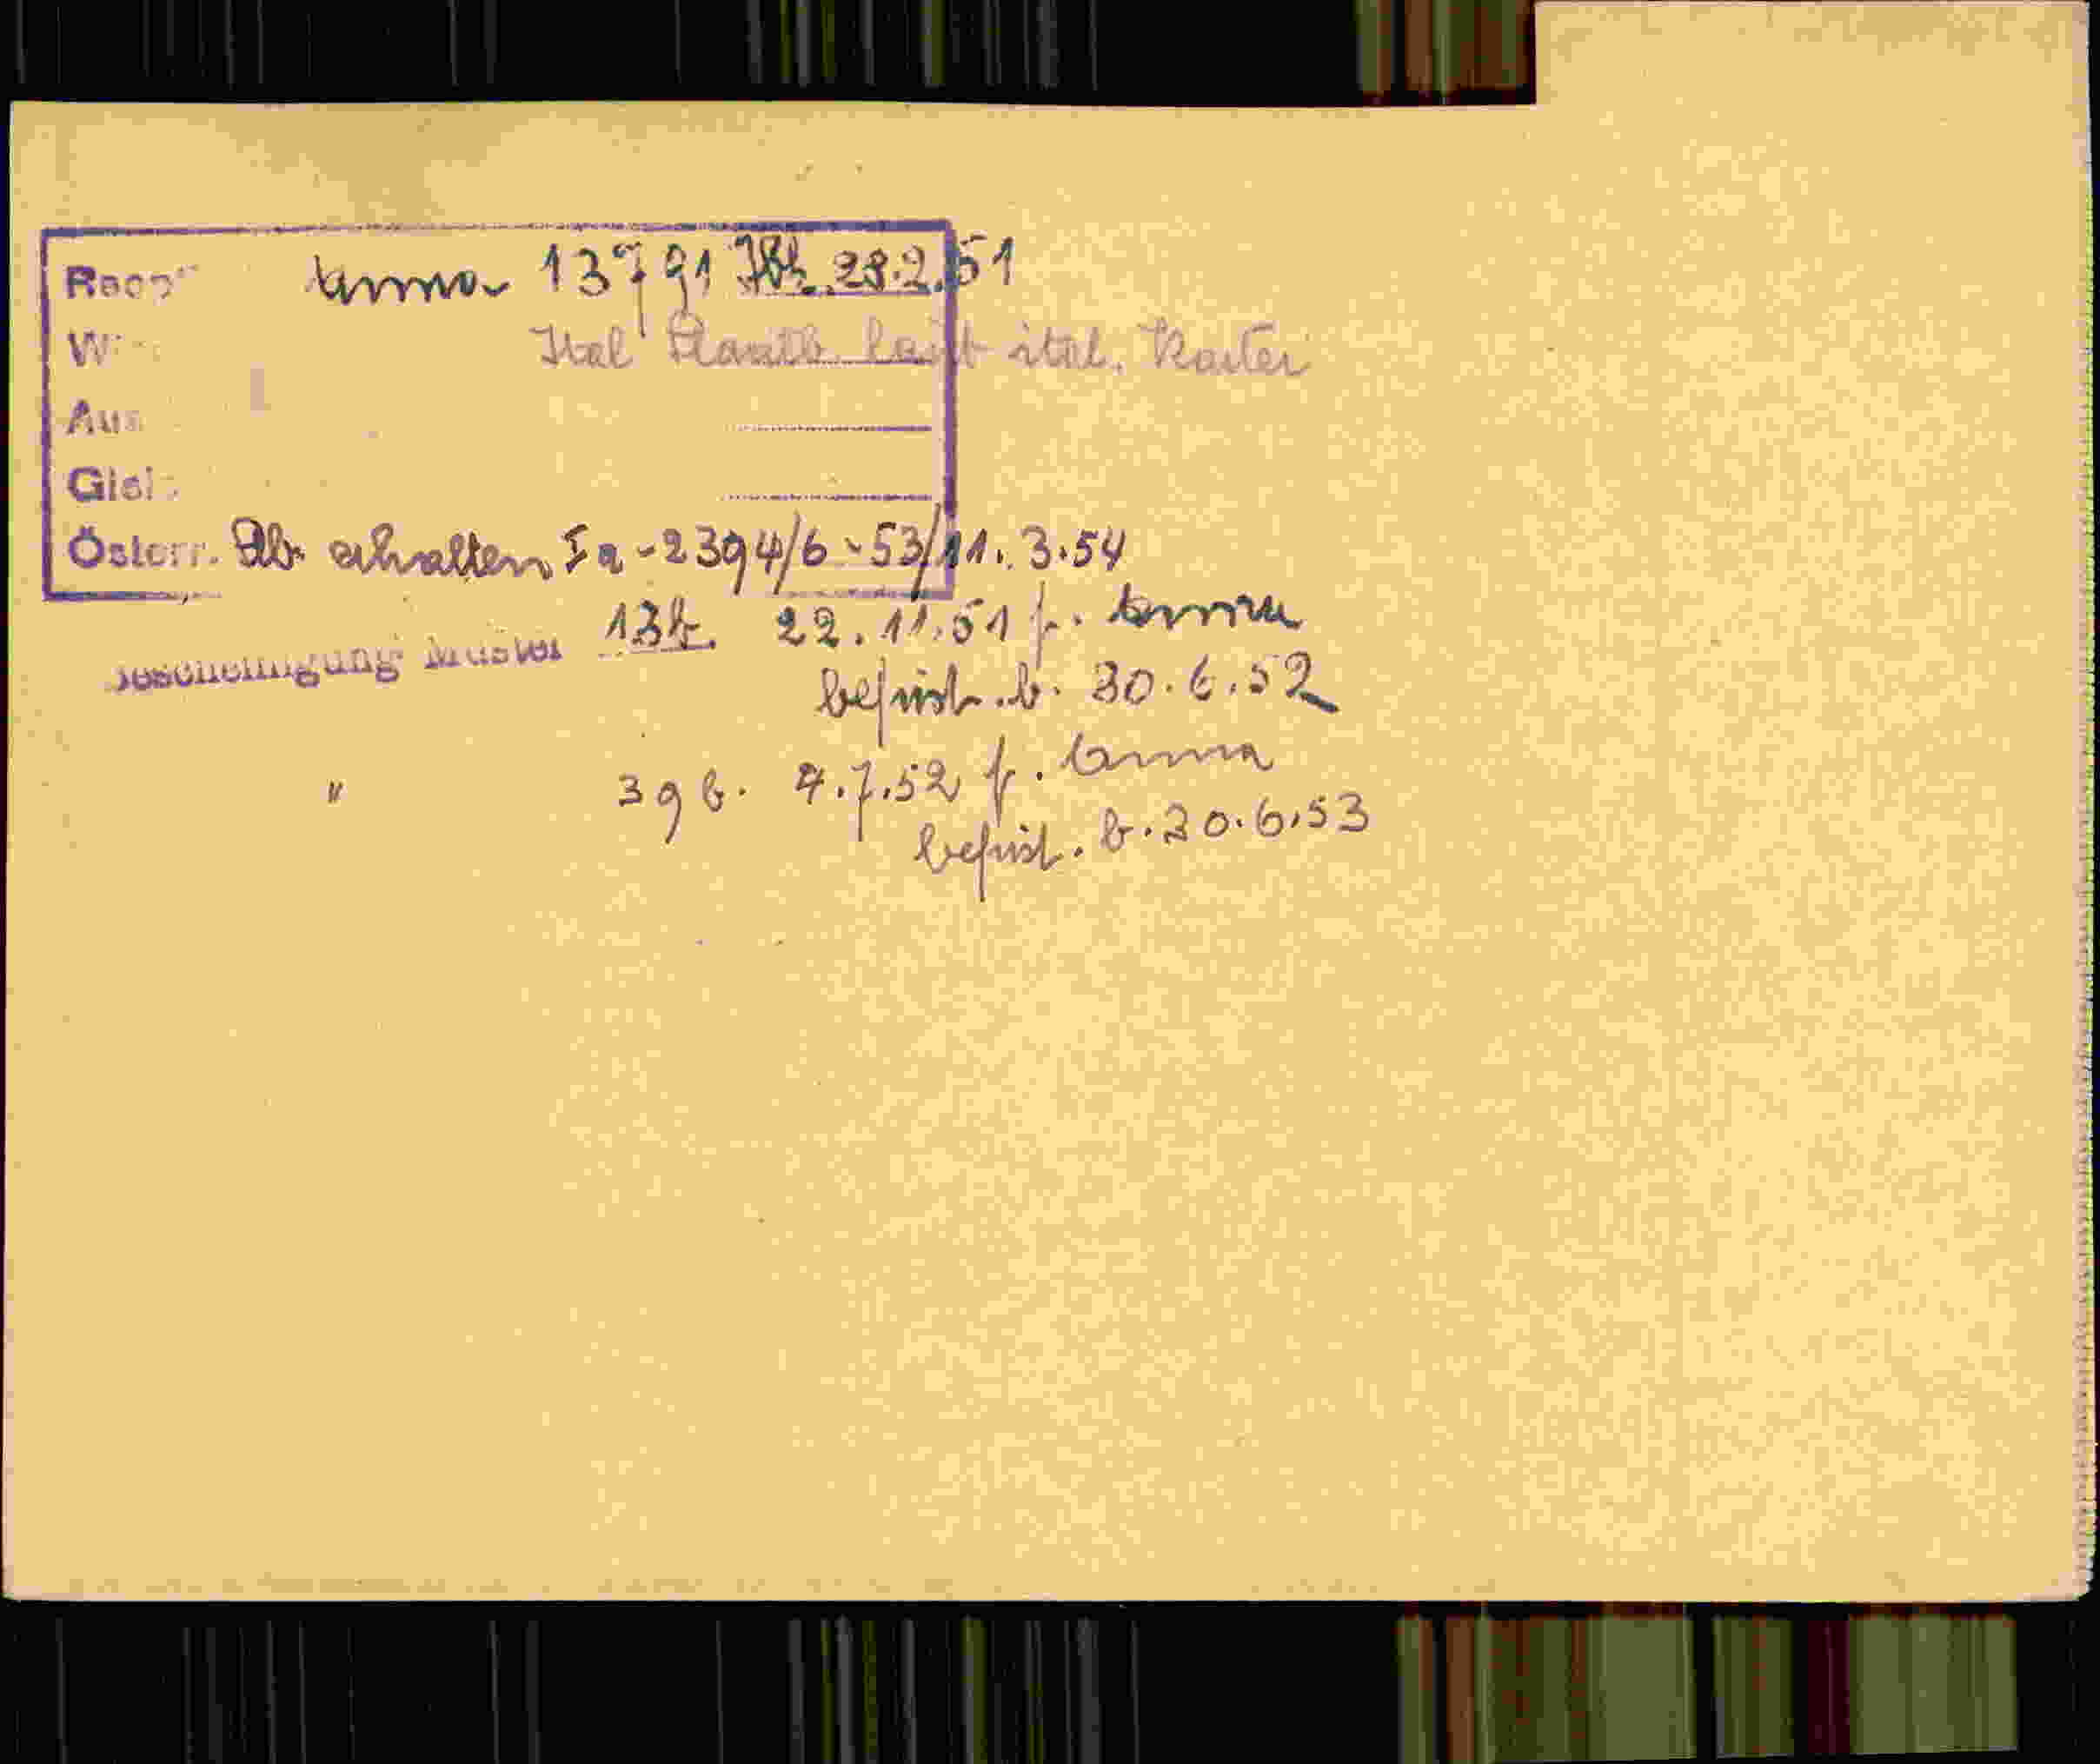 Anna 13791 Jbk. 23.2.51
Ital Staatsb. laut ital. Kartei
Aus
Österr. Stb. erhalten Ia-2394/6-53/11.3.54
Bescheinigung Muster 13b. 22.11.51 f. Anna
befrist. b. 30.6.52
" 39 b. 4.7.52 f. Anna
befrist. b. 30.6.53